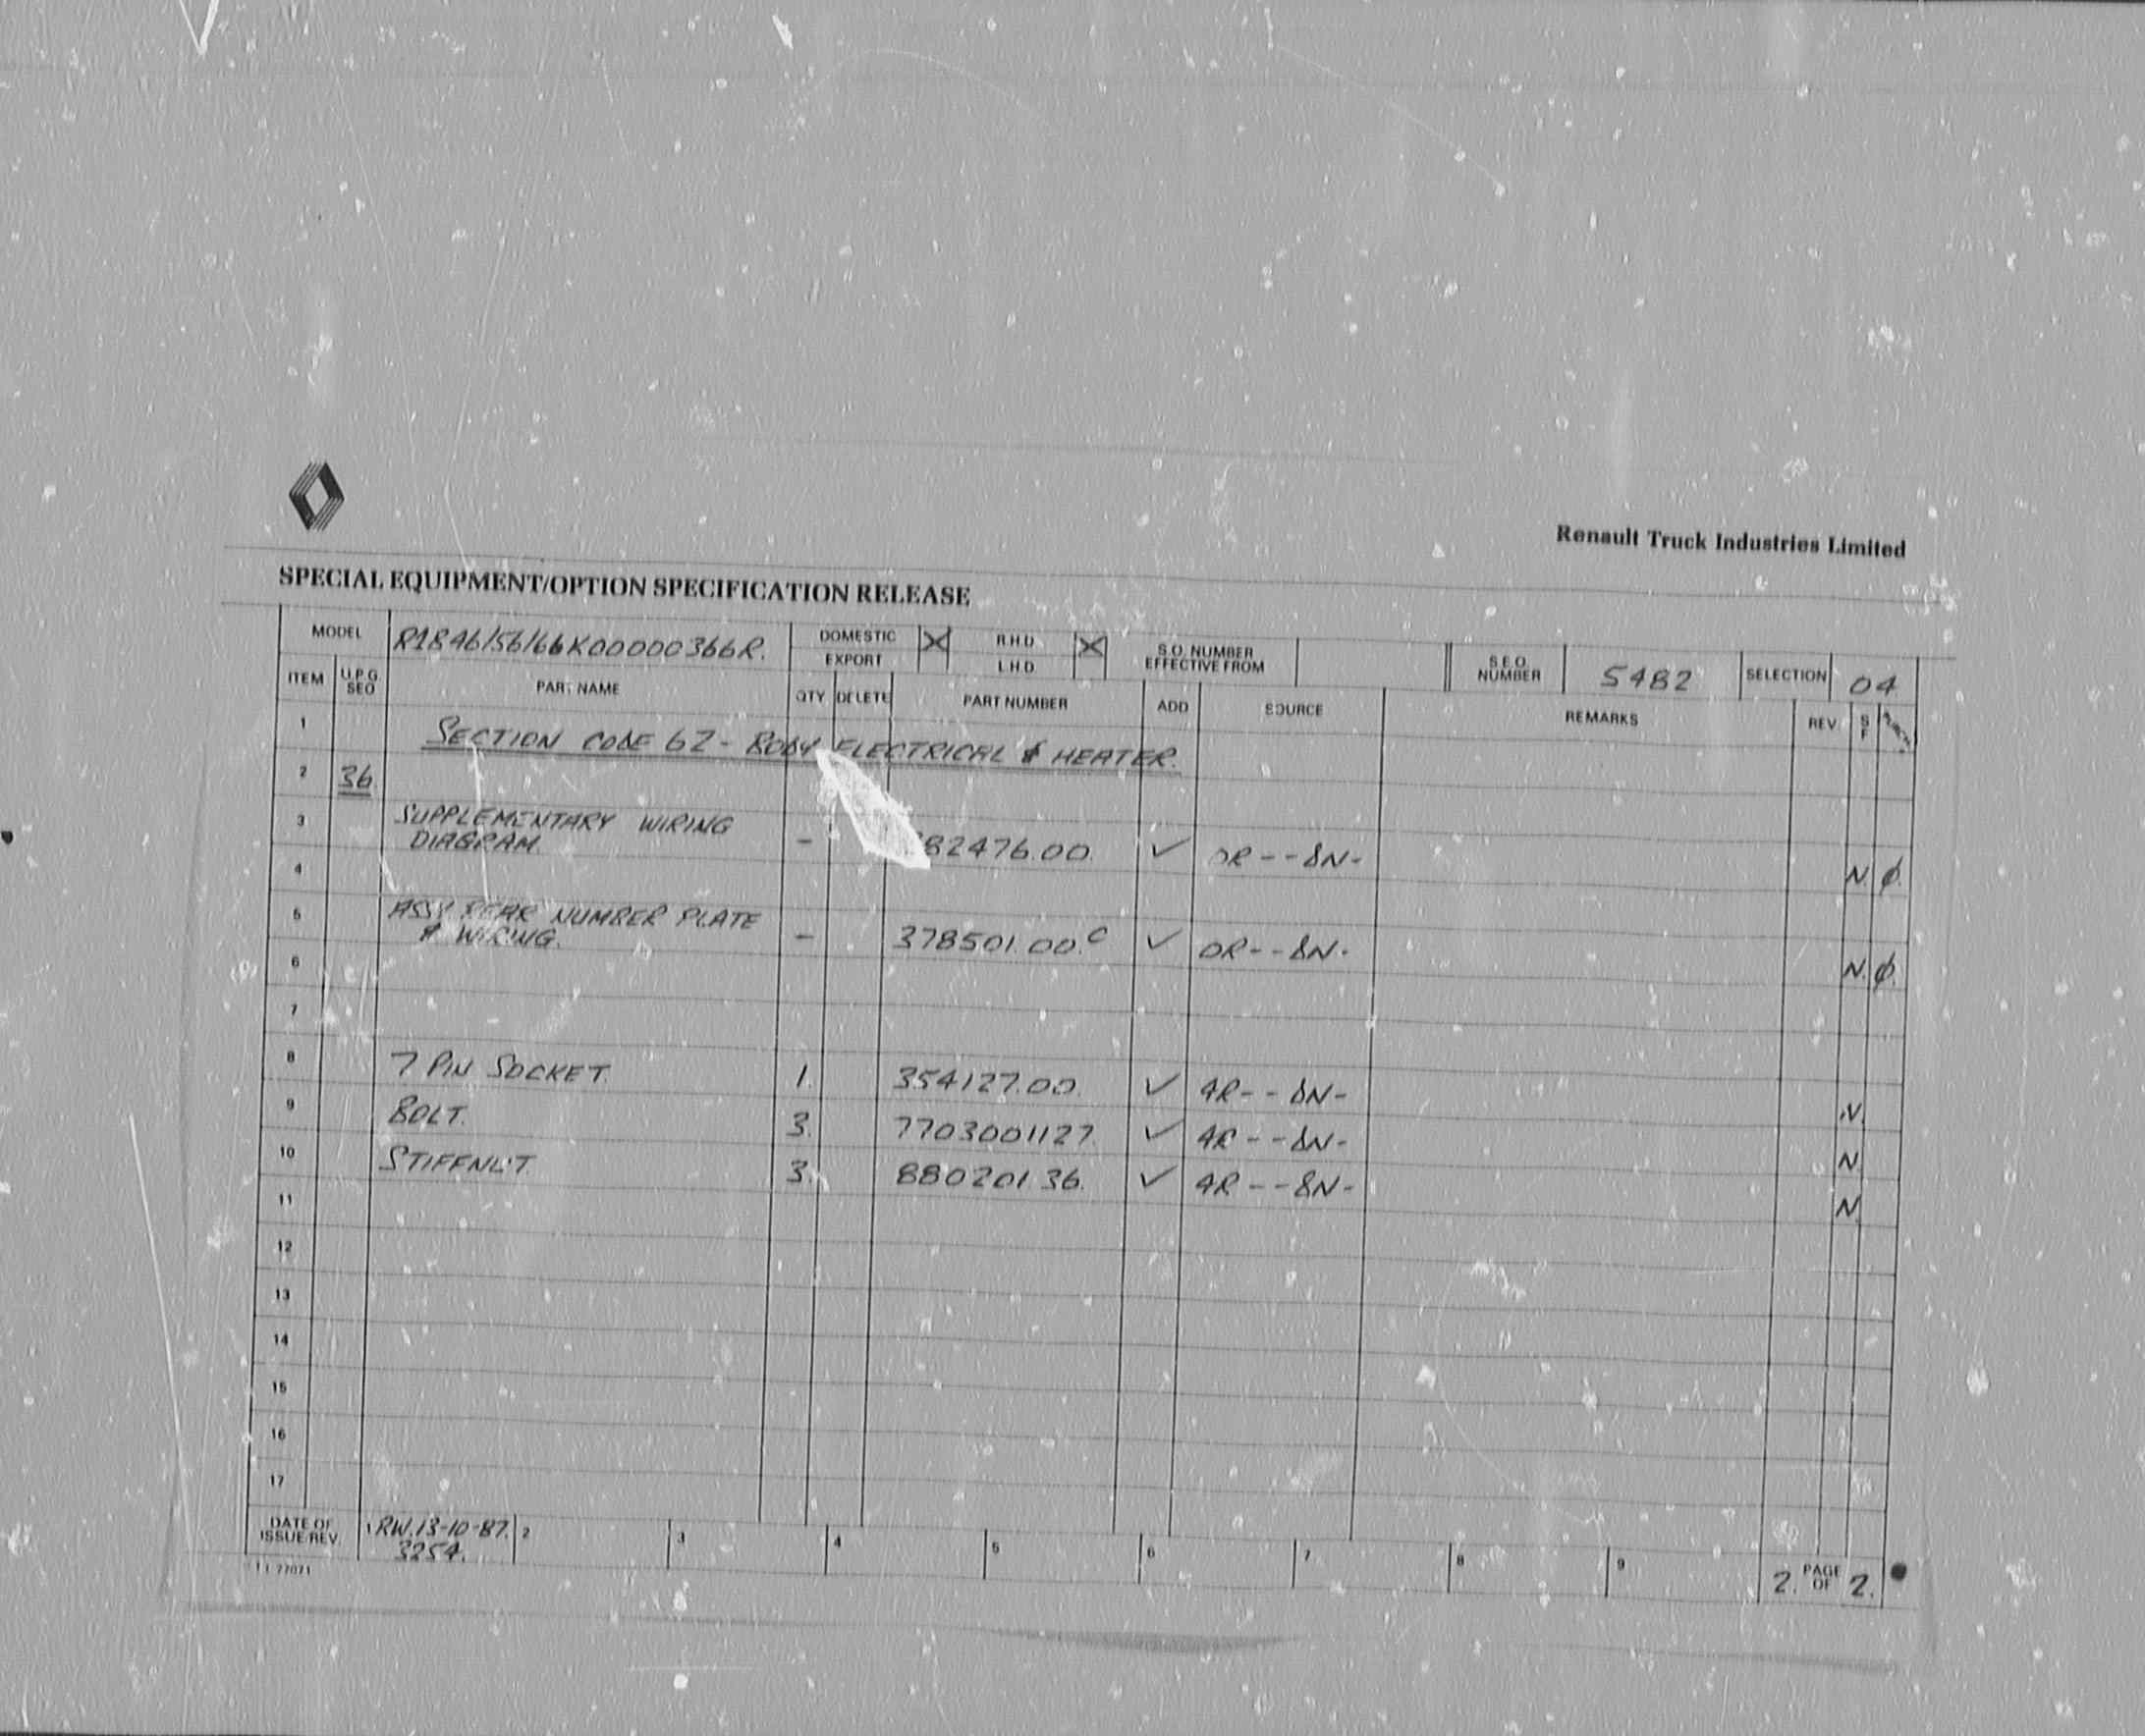 Renault Truck Industries Limited
SPECIAL EQUIPMENT/OPTION SPECIFICATION RELEASE
MODEL R1846/56/66K00000366R. DOMESTIC EXPORT R.H.D L.H.D. S.O. NUMBER EFFECTIVE FROM S.E.O. NUMBER 5482 SELECTION 04
ITEM U.P.G. SEO PART NAME QTY DELETE PART NUMBER ADD SOURCE REMARKS REV. S F
1 SECTION CODE 62 - BODY ELECTRICAL & HEATER.
2 36
3 SUPPLEMENTARY WIRING
DIAGRAM. - 82476.00. ✓ DR - - 8N - N Ø.
4
5 ASSY REAR NUMBER PLATE
& WIRING. - 378501.00.C ✓ DR - - 8N - N. Ø.
6
7
8 7 PIN SOCKET. 1. 354127.00. ✓ 4R - - 8N - N.
9 BOLT. 3. 7703001127. ✓ 4R - - 8N - N
10 STIFFNUT. 3. 880201.36. ✓ 4R - - 8N - N
11
12
13
14
15
16
17
DATE OF ISSUE/REV. 1 RW. 13-10-87. 2 3 4 5 6 7 8 9 2. PAGE OF 2.
3254.
77071